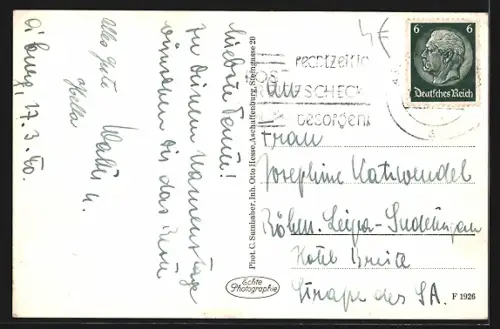 Liebste Fanni!
Zu Deinem Namenstage
wünschen Dir das Beste
Alles gute Walter u.
A'burg, 17.3.40.
Phot. C. Samhaber, Inh. Otto Hesse, Aschaffenburg, Steingasse 20
Echte
Photographie
rechtzeitig
SCHECK
besorgen!
6 6
Deutsches Reich
Frau
Josephine Katzwendel
Böhm. Leipa - Sudetengau
Hotel Breite
Straße des SA.
F 1926
4€